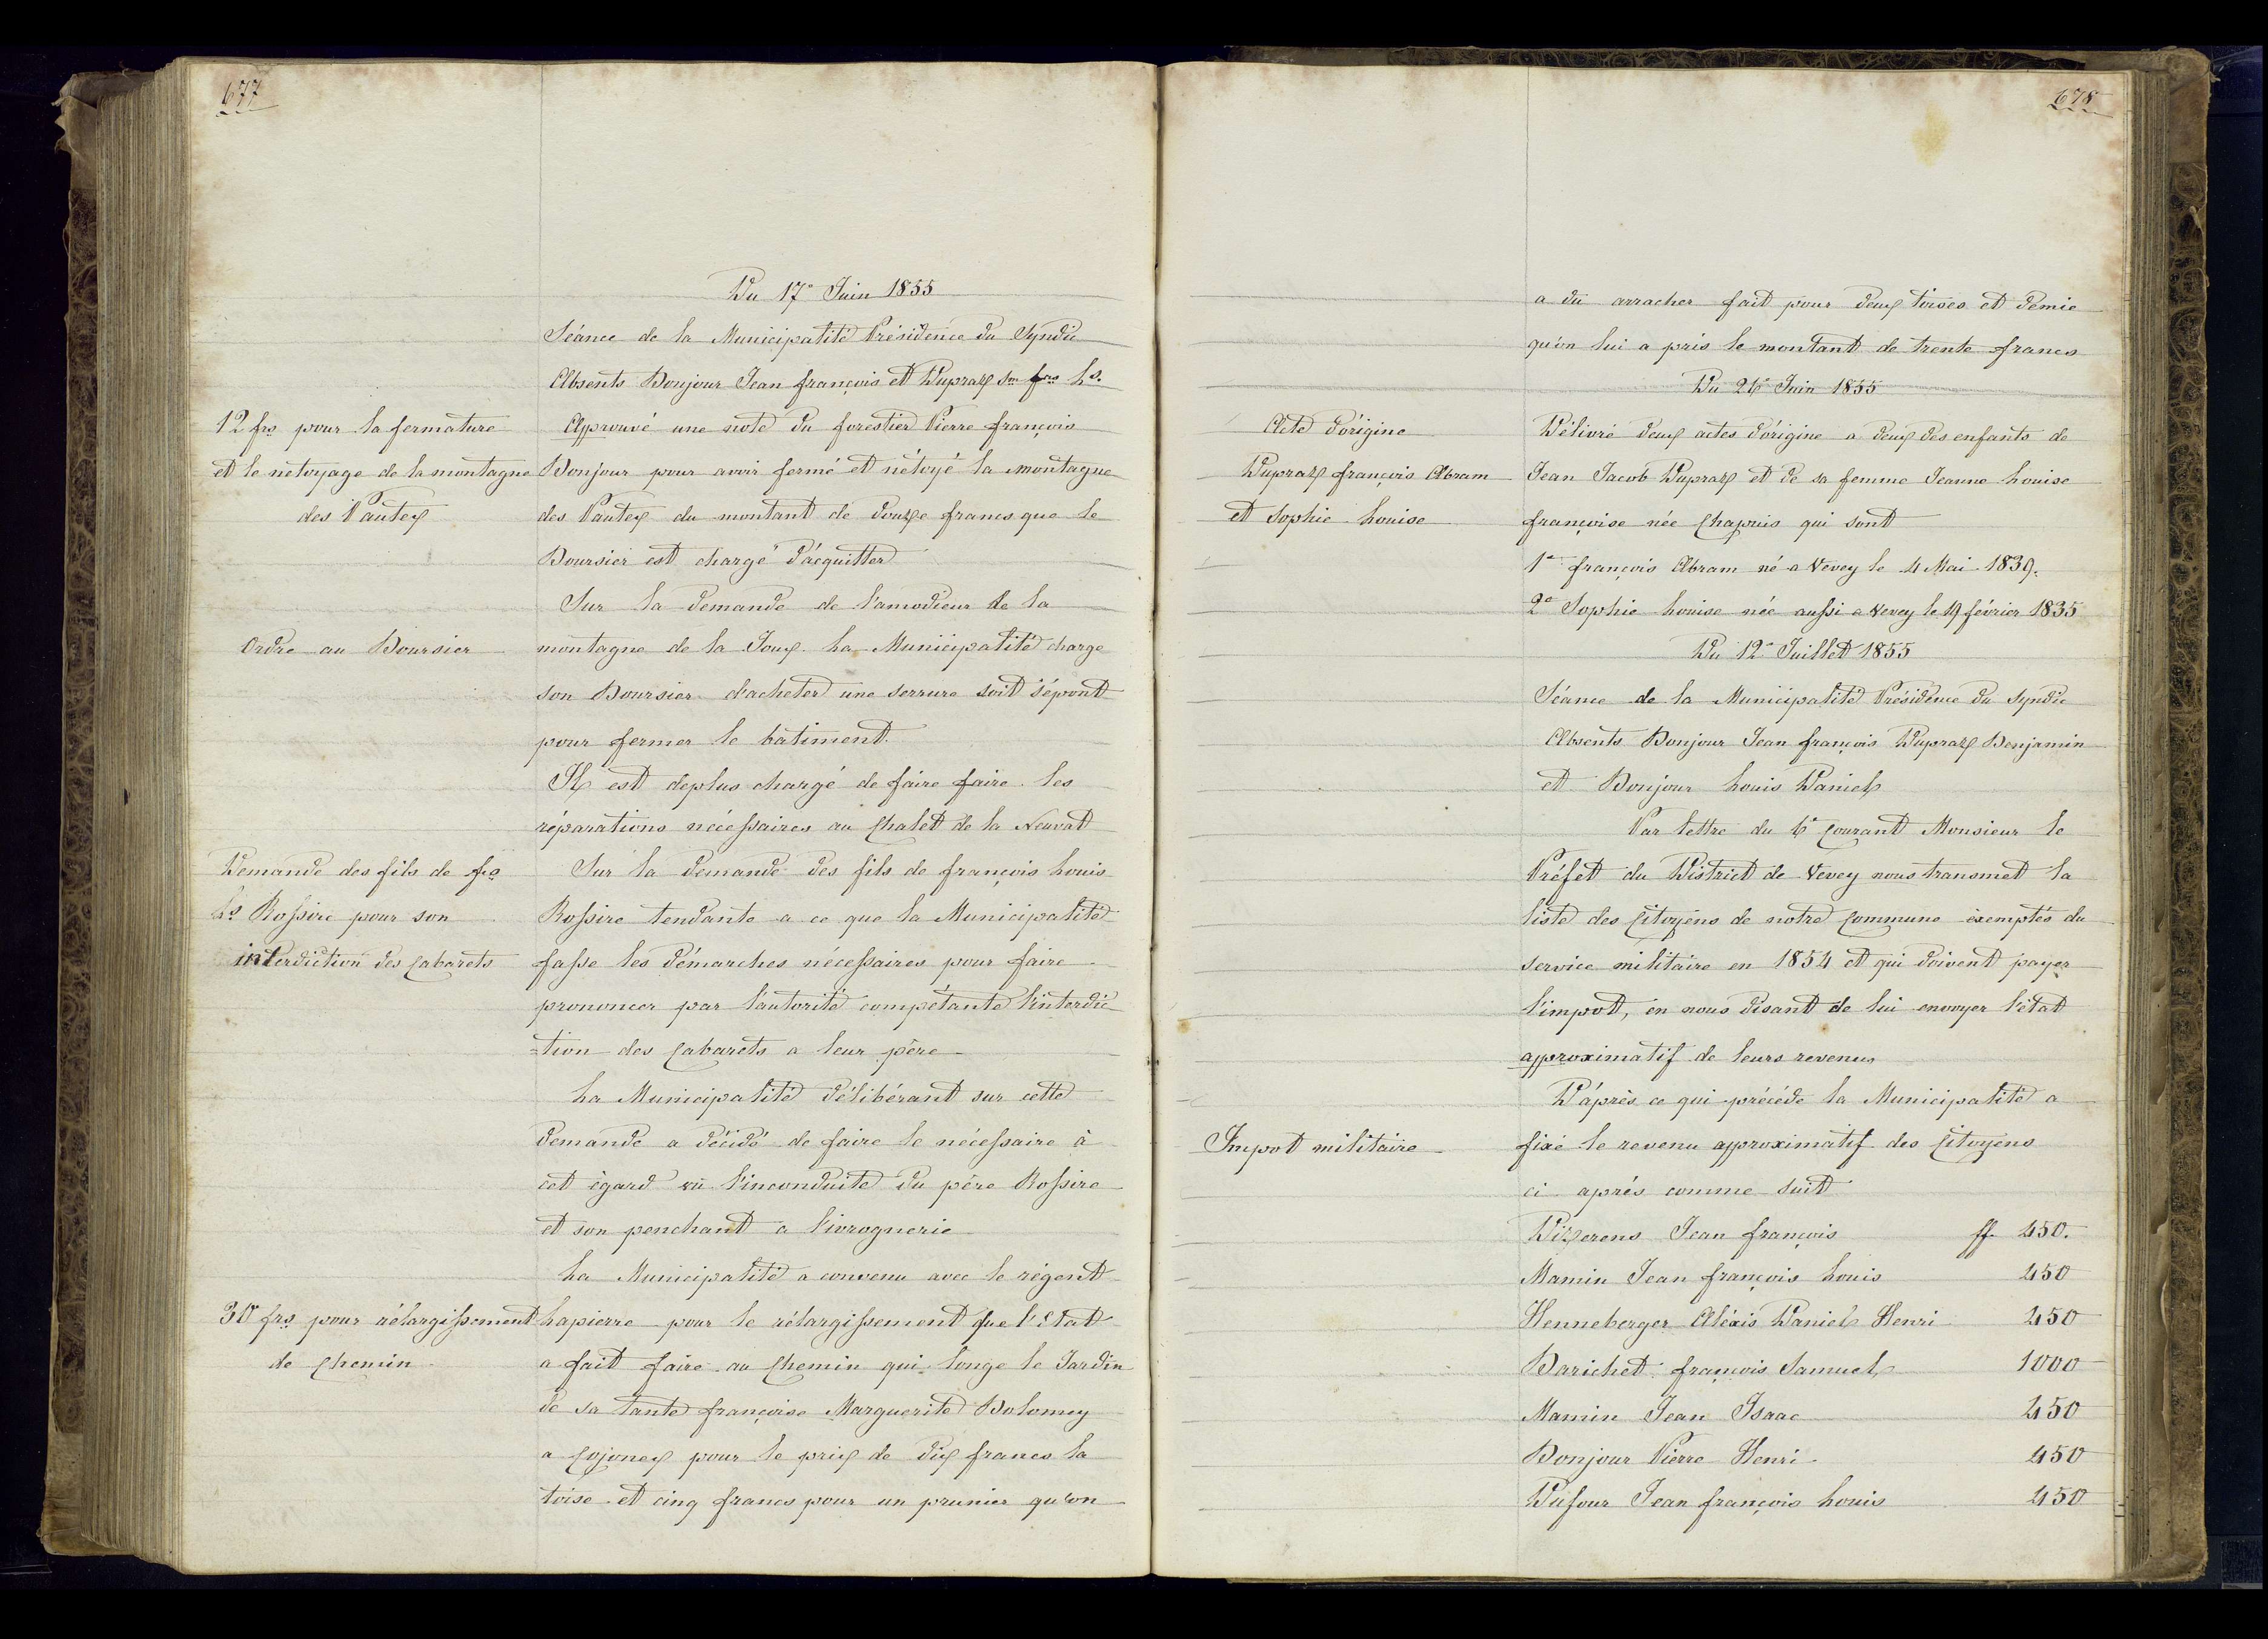 677
Du 17e Juin 1855
Séance de la Municipalité Présidence du Syndic
Absents Bonjour Jean françois et Dupraz Jn frs Ls.
12 frs pour la fermature
et le nétoyage de la montagne
des Pautex
Approuvé une note du forestier Pierre françois
Bonjour pour avoir fermé et nétoyé la montagne
des Pautex du montant de douze francs que le
Boursier est chargé d'acquitter
Sur la demande de l'amodieur de la
Ordre au Boursier
montagne de la Joux. La Municipalité charge
son Boursier d'acheter une serrure soit
pour fermer le bâtiment.
Il est deplus chargé de faire faire les
réparations nécessaires au Chalet de la Neuvat
Demande des fils de fs
Ls Rossire pour son
interdiction des Cabarets
Sur la demande des fils de françois Louis
Rossire tendante a ce que la Municipalité
fasse les démarches nécessaires pour faire
prononcer par l'autorité compétante l'interdic
=tion des Cabarets a leur père
La Municipalité délibérant sur cette
demande a décidé de faire le nécessaire à
cet égard vû l'inconduite du père Rossire
et son penchant a l'ivrognerie
La Municipalité a convenu avec le régent
30 frs pour rélargissement
de Chemin
Lapierre pour le rélargissement que l'Etat
a fait faire au Chemin qui longe le Jardin
de sa tante françoise Marguerite Bolomey
a Cojonex pour le prix de dix francs la
toise et cinq francs pour un prunier qu'on
678
a dû arracher fait pour deux toises et demie
qu'on lui a pris le montant de trente francs
Du 26e Juin 1855
Acte d'origine
Dupraz françois Abram
et Sophie Louise
Délivré deux actes d'origine a deux des enfants de
Jean Jacob Dupraz et de sa femme Jeanne Louise
françoise née Chapuis qui sont
1e françois Abram né a Vevey le 4 Mai 1839.
2e Sophie Louise née aussi a Vevey le 19 février 1835
Du 12e Juillet 1855
Séance de la Municipalité Présidence du Syndic
Absents Bonjour Jean françois Dupraz Benjamin
et Bonjour Louis Daniel
Par lettre du 6e Courant Monsieur le
Préfet du District de Vevey nous transmet la
liste des Citoyens de notre Commune exemptés du
service militaire en 1854 et qui doivent payer
l'impot, en nous disant de lui envoyer l'état
approximatif de leurs revenus
D'après ce qui précéde la Municipalité a
Impot militaire
fixé le revenu approximatif des Citoyens
ci après comme suit
Dizerens Jean françois ff. 450.
Mamin Jean françois Louis 450
Henneberger Aléxis Daniel Henri 450
Barichet françois Samuel 1000
Mamin Jean Isaac 450
Bonjour Pierre Henri 450
Dufour Jean françois Louis 450